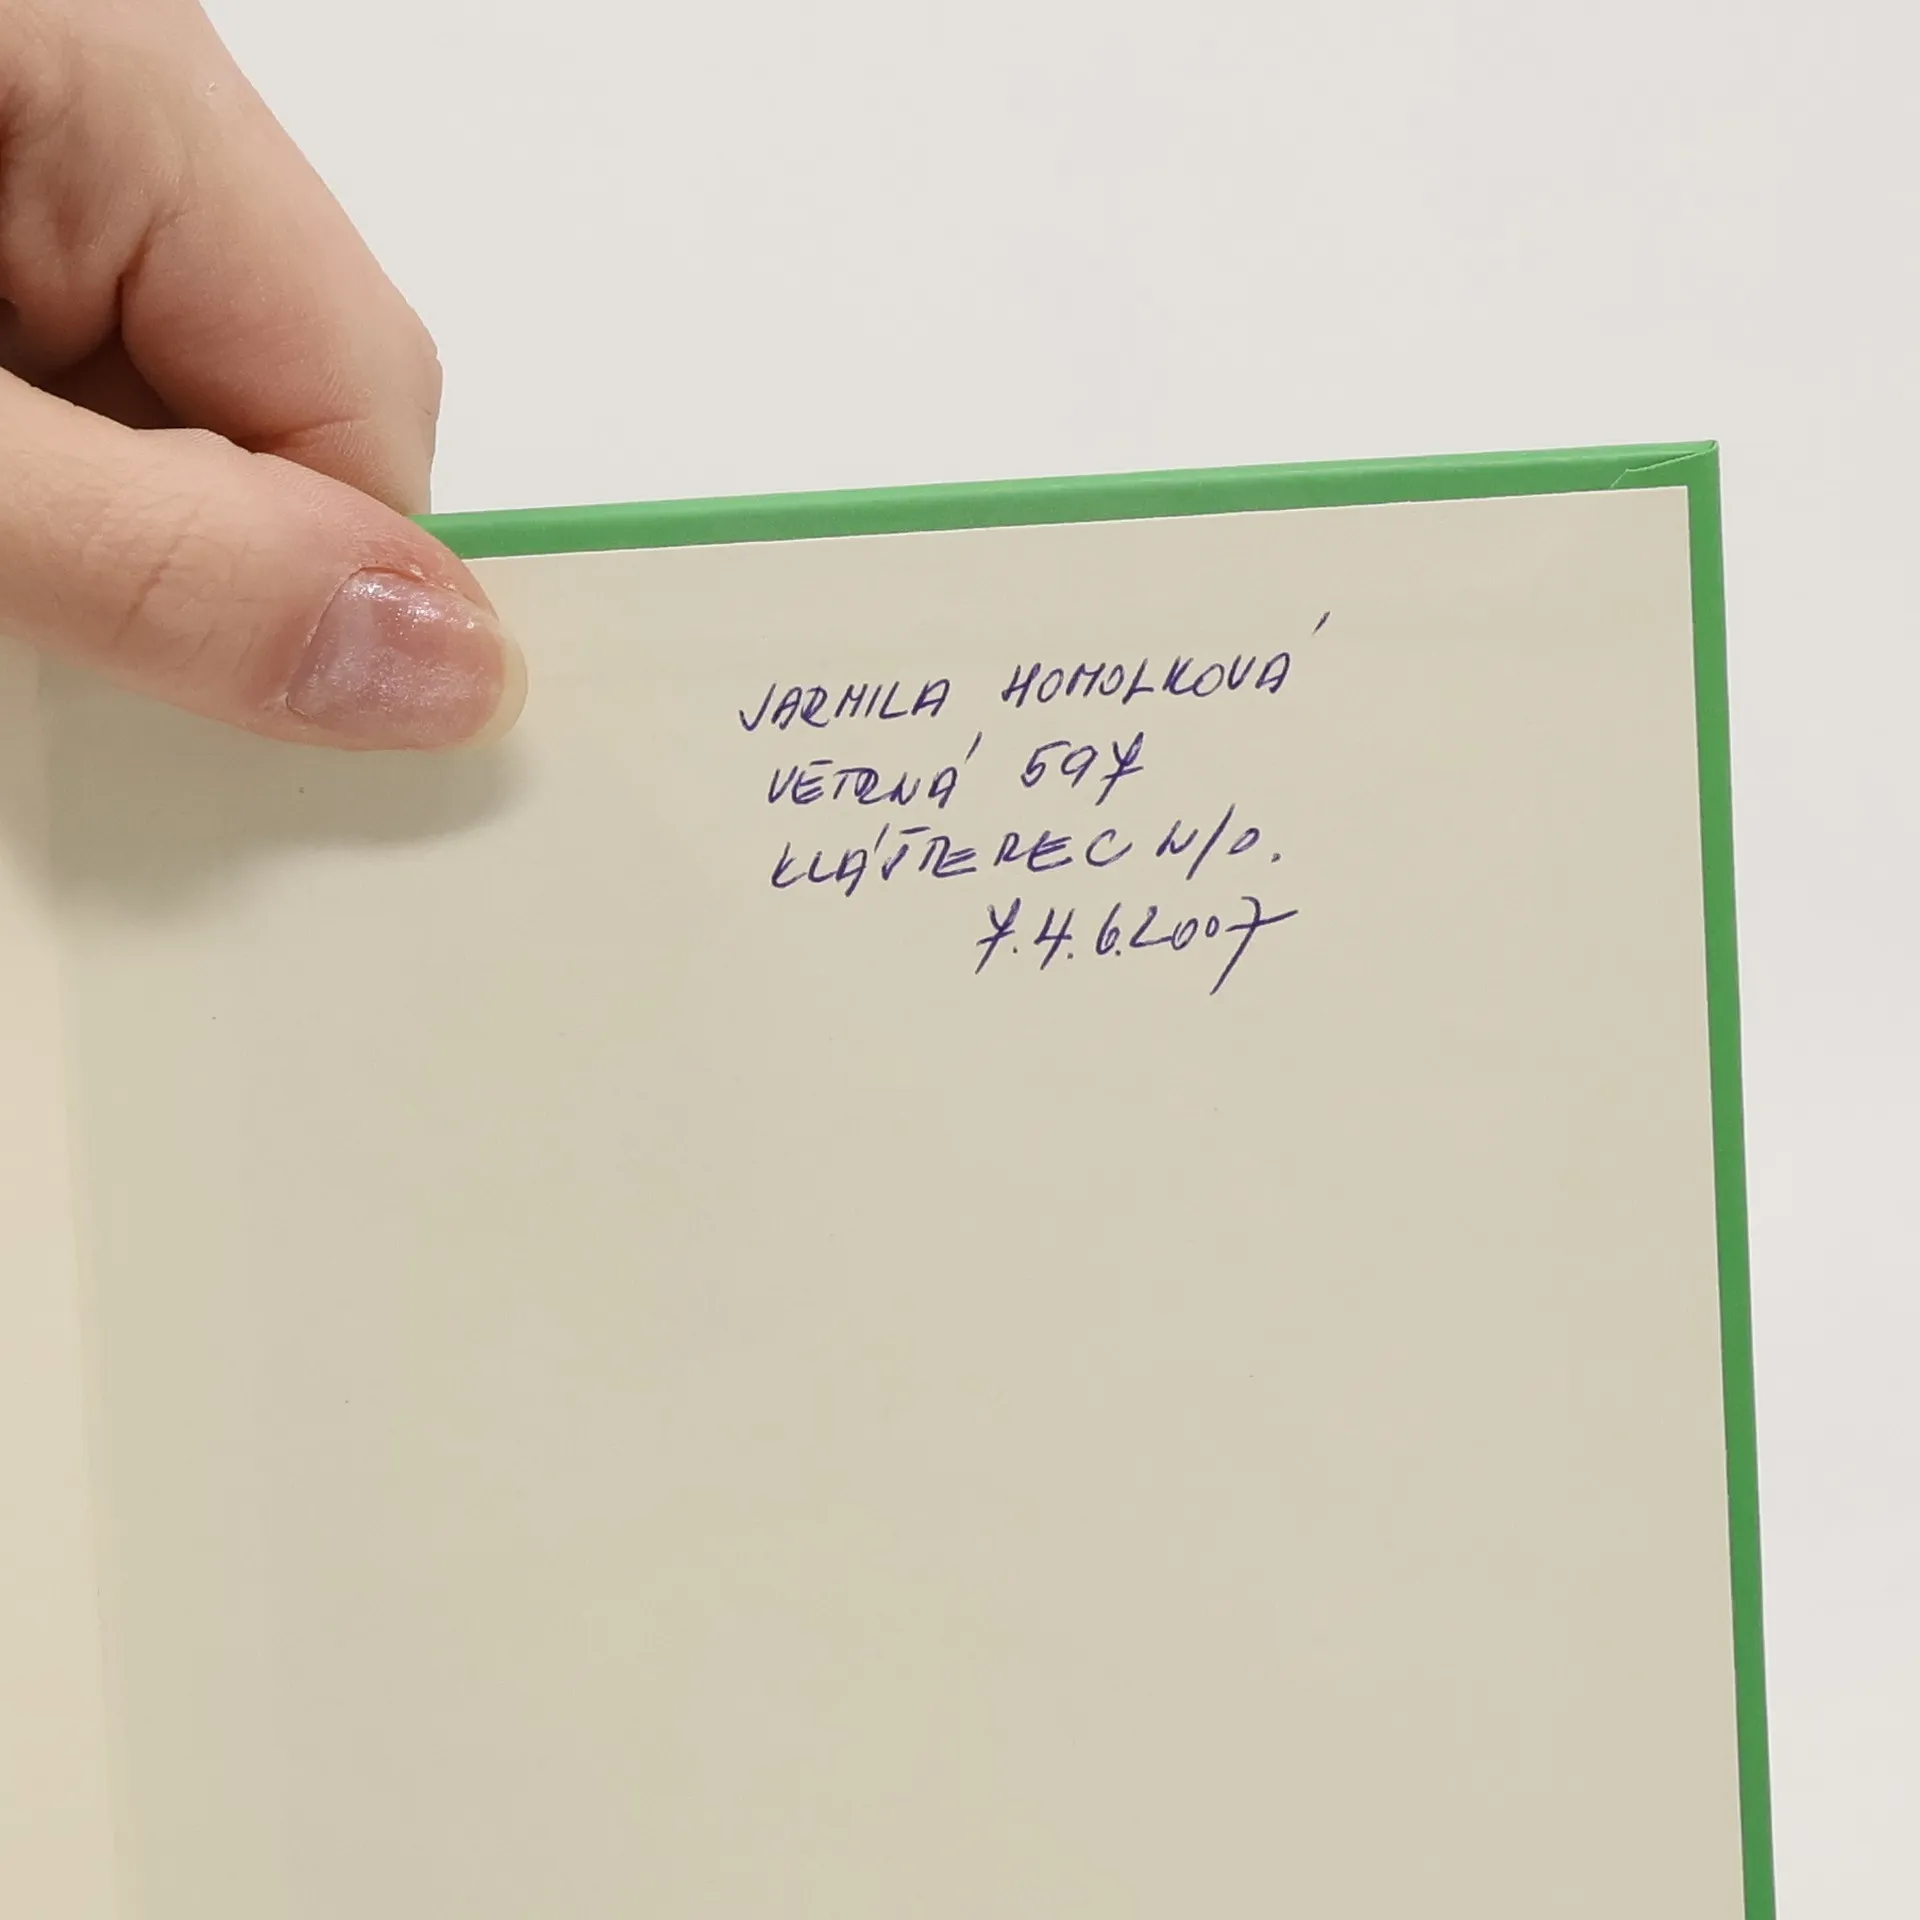 JARMILA HOMOLKOVÁ
VĚTRNÁ 597
KLÁŠTEREC N/O.
7.4.6.2007